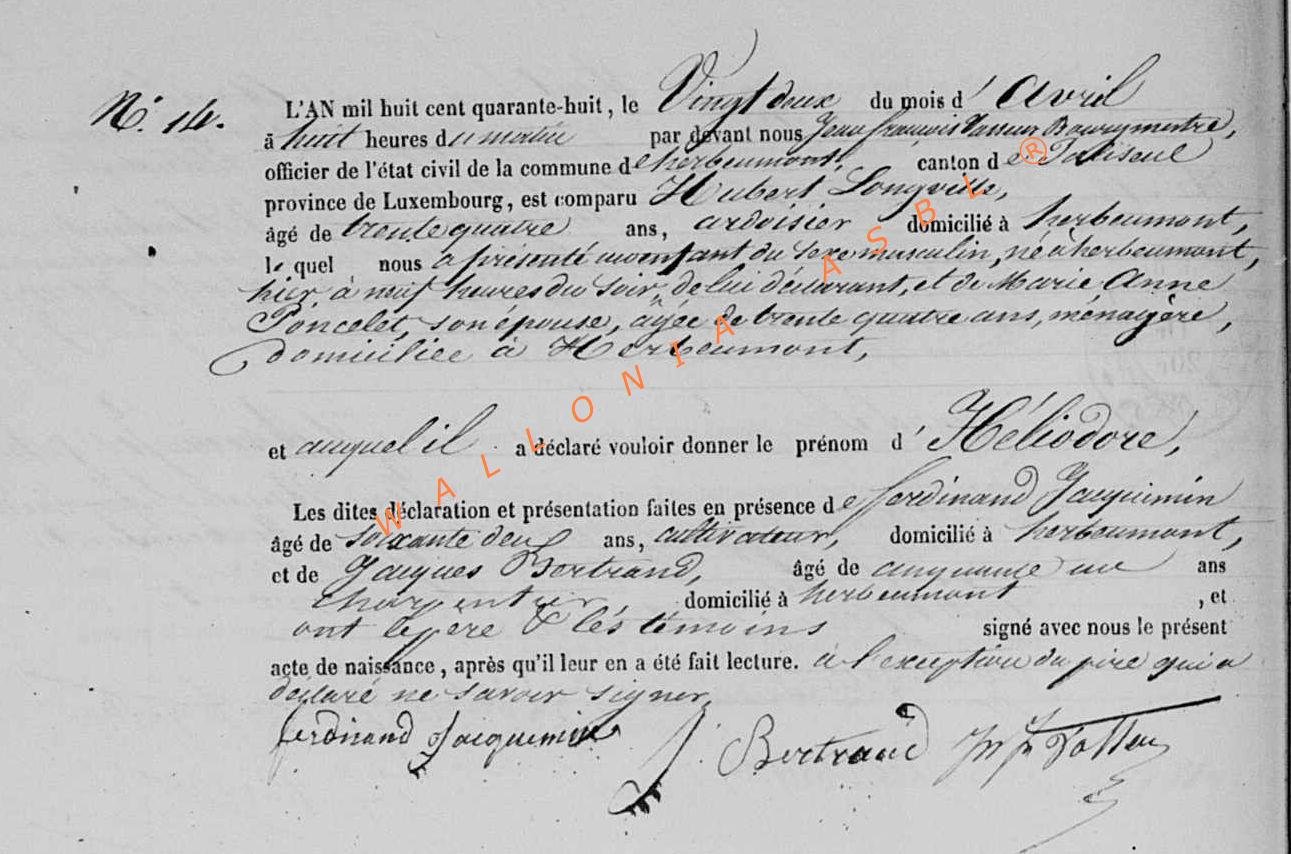 N.° 14.
L'AN mil huit cent quarante-huit, le Vingt deux du mois d' Avril
à huit heures du matin par devant nous Jean françois Bourgmestre,
officier de l'état civil de la commune de herbeumont, canton de Paliseul
province de Luxembourg, est comparu Hubert Longville,
âgé de trente quatre ans, ardoisier domicilié à herbeumont,
le quel nous a présenté un enfant du sexe masculin, né à herbeumont,
hier, à neuf heures du soir, de lui déclarant, et de Marie Anne
Poncelet, son épouse, agée de trente quatre ans, ménagère,
domiciliée à Herbeumont,
et auquel il a déclaré vouloir donner le prénom d' Héliodore,
Les dites déclaration et présentation faites en présence de ferdinand Jacquemin
âgé de soixante deux ans, cultivateur, domicilié à herbeumont,
et de Jacques Bertrand, âgé de cinquante un ans
charpentier domicilié à herbeumont , et
ont le pere & les témoins signé avec nous le présent
acte de naissance, après qu'il leur en a été fait lecture. à l'exception du père qui a
déclaré ne savoir signer.
ferdinand Jacquemin J Bertrand
WALLONIA ASBL ®